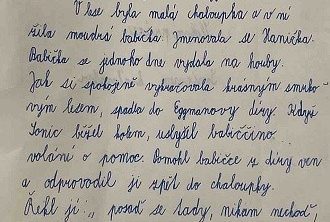 V lese byla malá chaloupka a v ní
žila moudrá babička. Jmenovala se Hanička.
Babička se jednoho dne vydala na houby.
Jak si spokojeně vykračovala krásným smrko-
vým lesem, spadla do Eggmanovy díry. Když
Sonic běžel kolem, uslyšel babiččino
volání o pomoc. Pomohl babičce z díry ven
a odprovodil ji zpět do chaloupky.
Řekl jí: „ posaď se tady, nikam nechoď